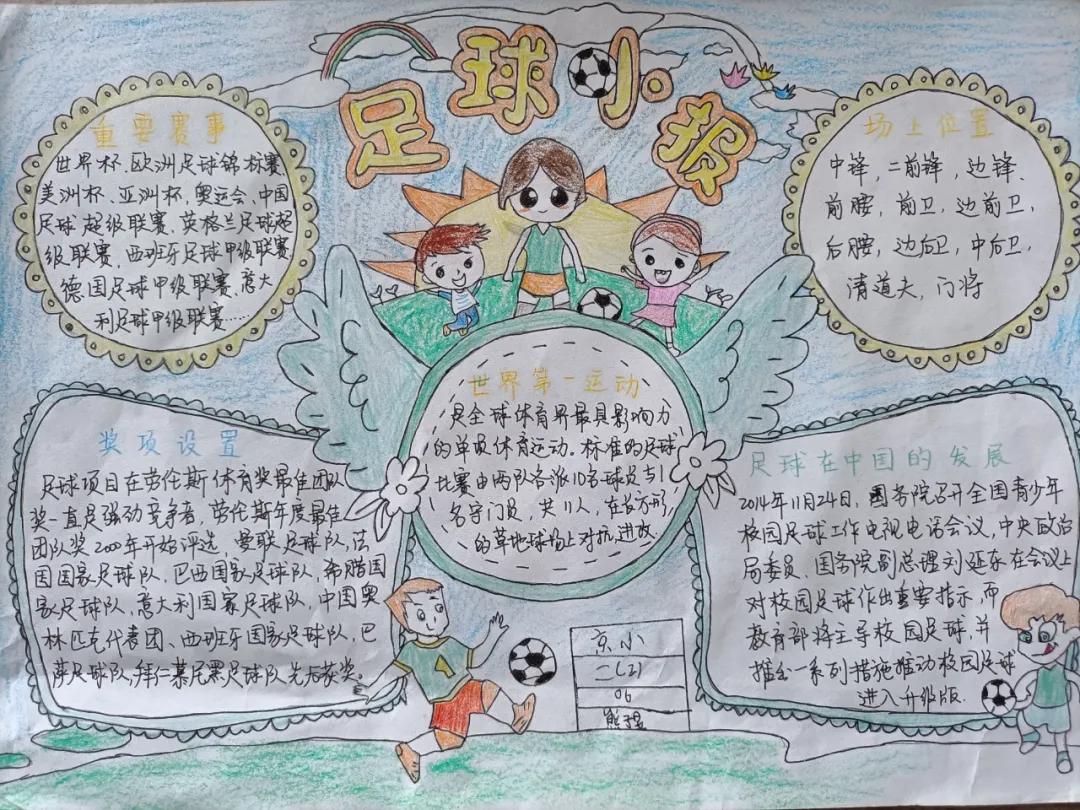 足球小报
重要赛事
世界杯、欧洲足球锦标赛
美洲杯、亚洲杯,奥运会、中国
足球超级联赛、英格兰足球超
级联赛、西班牙足球甲级联赛
德国足球甲级联赛、意大
利足球甲级联赛……
场上位置
中锋,二前锋,边锋、
前腰,前卫,边前卫,
后腰,边后卫,中后卫,
清道夫,门将
世界第一运动
是全球体育界最具影响力
的单项体育运动。标准的足球
比赛由两队各派10名球员与1
名守门员,共11人,在长方形
的草地球场上对抗、进攻
奖项设置
足球项目在劳伦斯体育奖最佳团队
奖一直是强劲竞争者,劳伦斯年度最佳
团队奖2000年开始评选,曼联足球队,法
国国家足球队,巴西国家足球队,希腊国
家足球队,意大利国家足球队,中国奥
林匹克代表团、西班牙国家足球队,巴
萨足球队,拜仁慕尼黑足球队先后获奖。
足球在中国的发展
2014年11月24日,国务院召开全国青少年
校园足球工作电视电话会议,中央政治
局委员、国务院副总理刘延东在会议上
对校园足球作出重要指示,而
教育部将主导校园足球,并
推出一系列措施推动校园足球
进入升级版.
京小
二(2)
06
熊